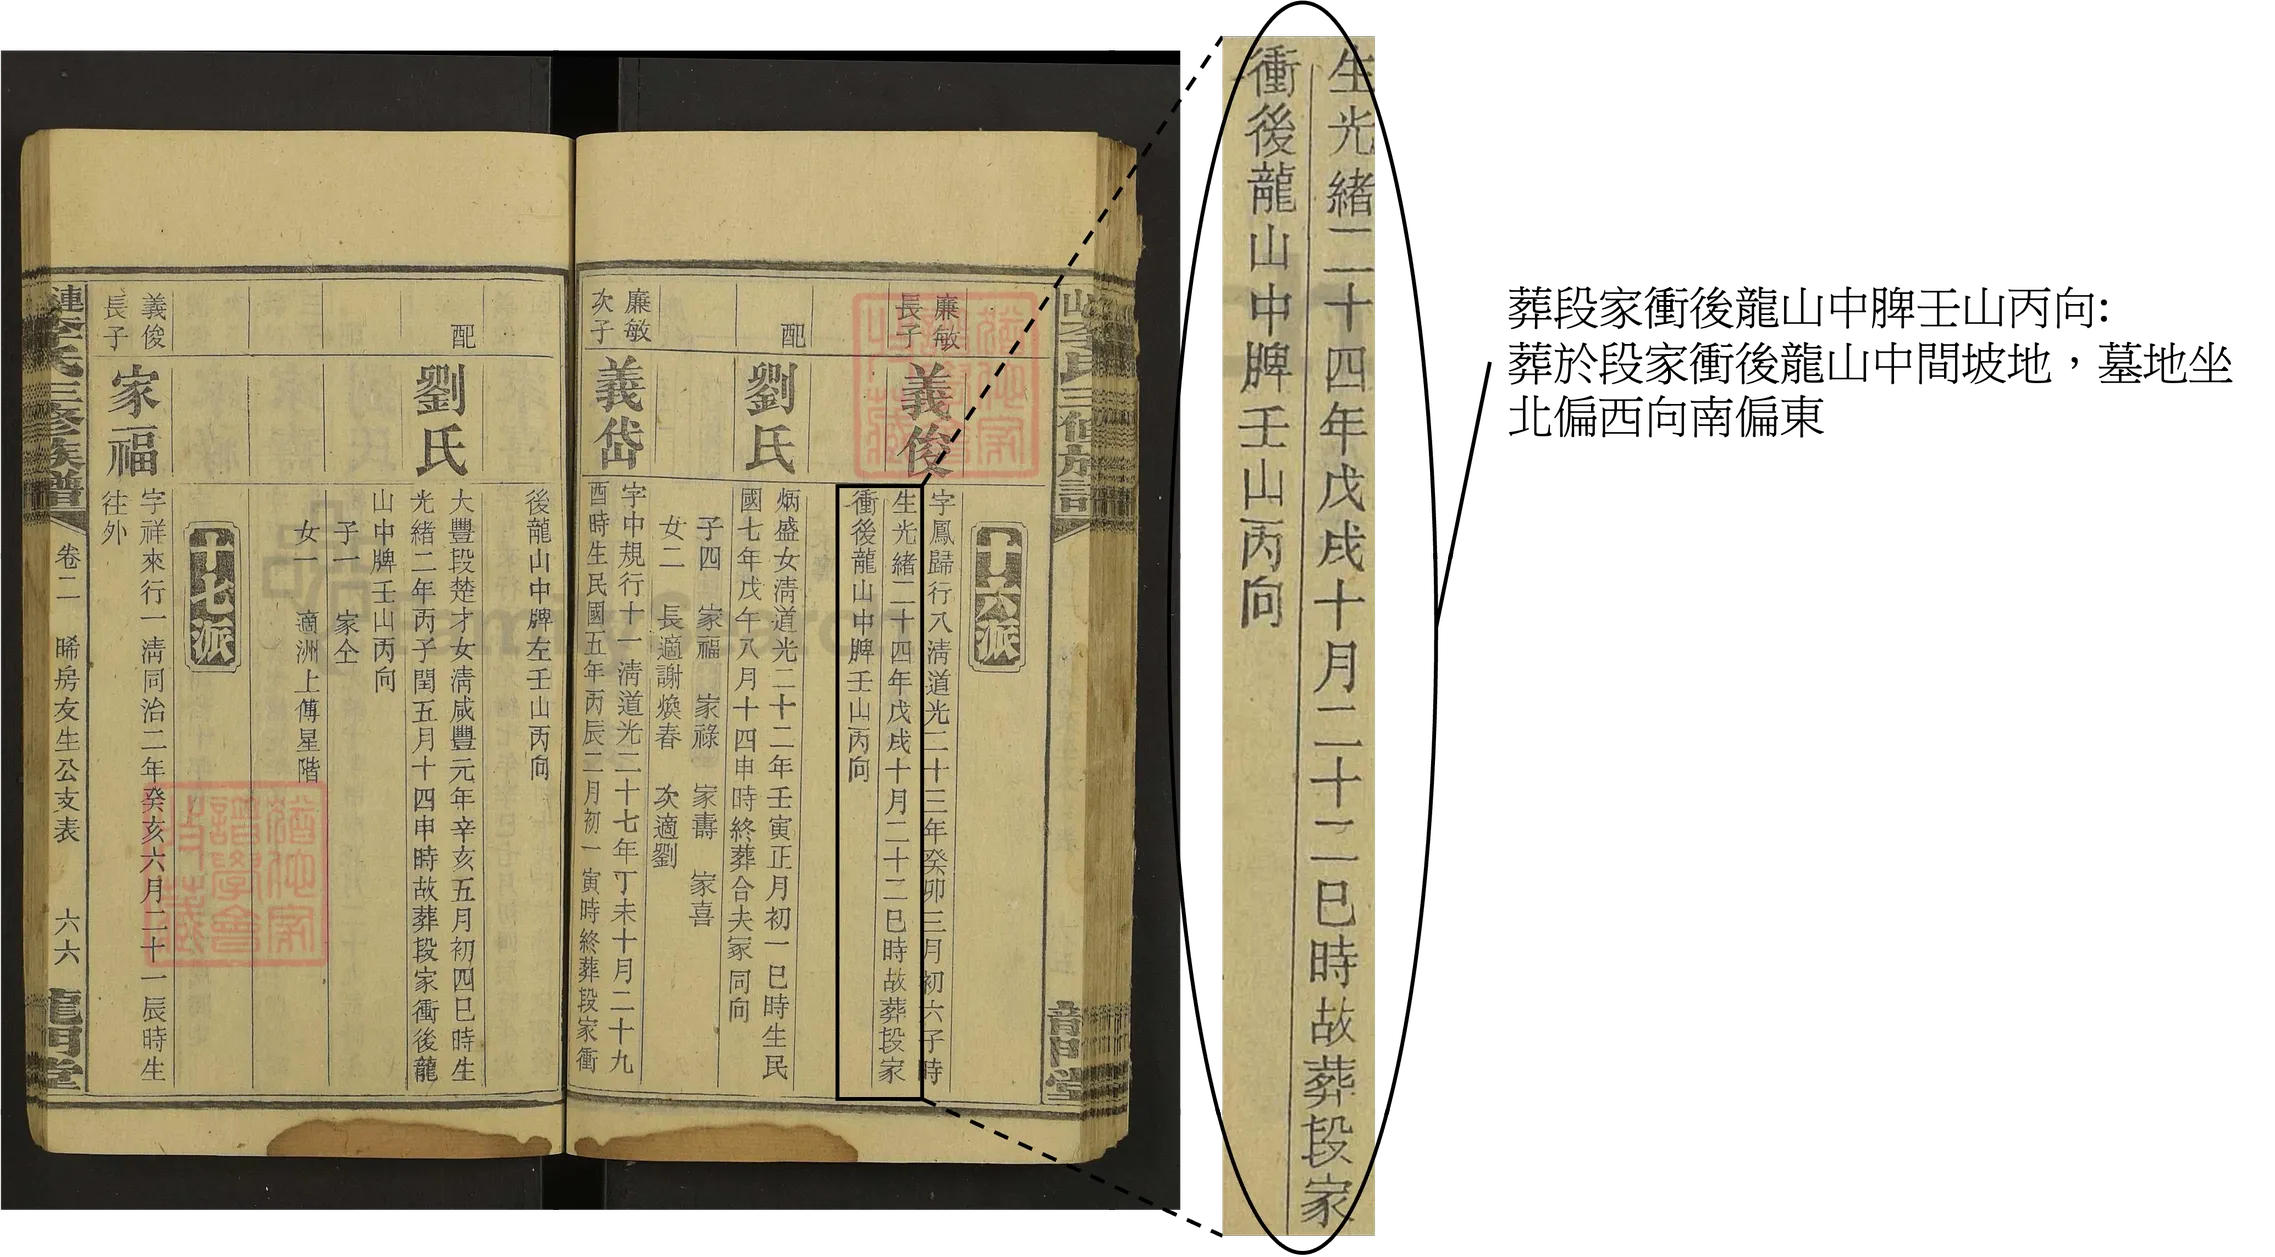 李氏三修族譜
龍門堂
十六派
廉敏
長子
義俊
字鳳歸行八淸道光二十三年癸卯三月初六子時
生光緒二十四年戊戌十月二十二巳時故葬段家
衝後龍山中脾壬山丙向
配
劉氏
炳盛女淸道光二十二年壬寅正月初一巳時生民
國七年戊午八月十四申時終葬合夫冢同向
子四 家福 家祿 家壽 家喜
女二 長適謝煥春 次適劉
廉敏
次子
義岱
字中規行十一淸道光二十七年丁未十月二十九
酉時生民國五年丙辰二月初一寅時終葬段家衝
後龍山中脾左壬山丙向
配
劉氏
大豐段楚才女淸咸豐元年辛亥五月初四巳時生
光緒二年丙子閏五月十四申時故葬段家衝後龍
山中脾壬山丙向
子一 家仝
女一 適洲上傅星階
十七派
義俊
長子
家福
字祥來行一淸同治二年癸亥六月二十一辰時生
往外
漣李氏三修族譜
卷二 晞房友生公支表 六六
龍門堂
FamilySearch
生光緒二十四年戊戌十月二十二巳時故葬段家
衝後龍山中脾壬山丙向
葬段家衝後龍山中脾壬山丙向:
葬於段家衝後龍山中間坡地，墓地坐
北偏西向南偏東